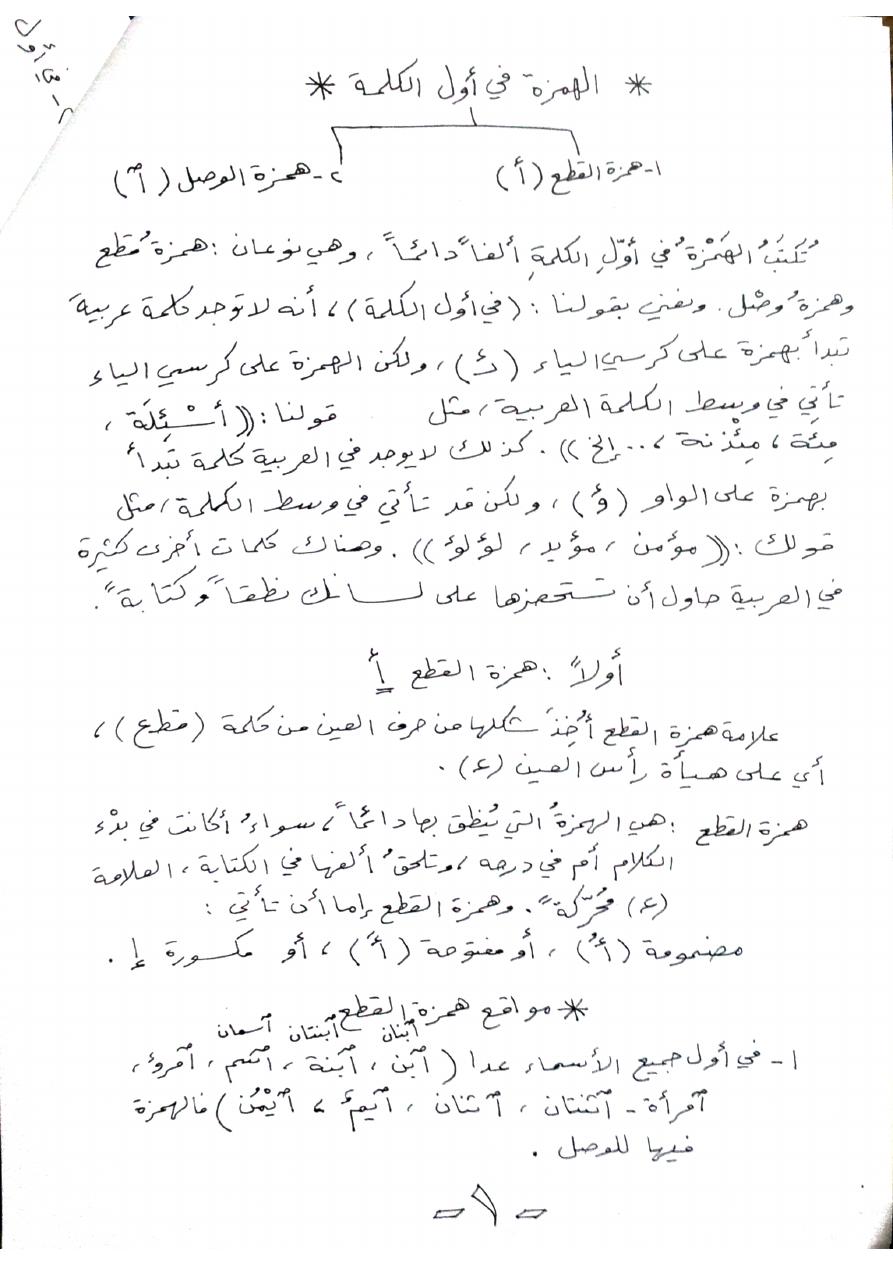 * الهمزة في أول الكلمة *
١- همزة القطع (أ)
٢- همزة الوصل (ٱ)
تُكتَبُ الهَمْزةُ في أوّلِ الكلمةِ ألفاً دائماً، وهي نوعان: همزةُ قطع
وهمزةُ وصْل. ونعني بقولنا: (في أول الكلمة)، أنه لا توجد كلمة عربية
تبدأ بهمزة على كرسي الياء (ئ)، ولكن الهمزة على كرسي الياء
تأتي في وسط الكلمة العربية، مثل قولنا: ((أسْئِلَة،
مِئة، مِئْذنة،... إلخ)). كذلك لا يوجد في العربية كلمة تبدأ
بهمزة على الواو (ؤ)، ولكن قد تأتي في وسط الكلمة، مثل
قولك: ((مؤمن، مؤيد، لؤلؤ)). وهناك كلمات أخرى كثيرة
في العربية حاول أن تستحضرها على لسانك نطقاً وكتابةً.
أولاً: همزة القطع أ
علامة همزة القطع أُخِذَ شكلها من حرف العين من كلمة (قطع)،
أي على هيأة رأس العين (ء).
همزة القطع: هي الهمزةُ التي يُنطق بها دائماً، سواءُ أكانت في بدْء
الكلام أم في درجه، وتلحقُ ألفها في الكتابة، العلامة
(ء) مُحَرّكةً. وهمزة القطع إما أن تأتي:
مضمومة (أُ)، أو مفتوحة (أَ)، أو مكسورة إ.
* مواقع همزة القطع
ٱبنان ٱبنتان ٱسمان
١- في أول جميع الأسماء عدا (ٱبن، ٱبنة، ٱسم، ٱمرؤ،
ٱمرأة - ٱثنتان، ٱثنان، ٱيمُ، ٱيْمُن) فالهمزة
فيها للوصل.
-١-